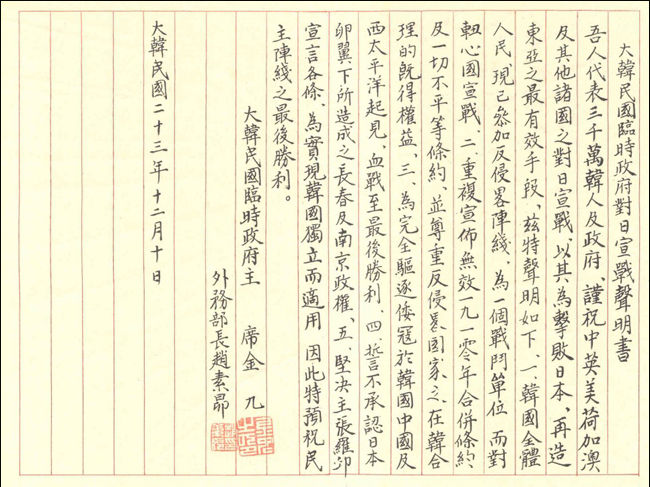 大韓民國臨時政府對日宣戰聲明書
吾人代表三千萬韓人及政府、謹祝中英美荷加澳
及其他諸國之對日宣戰、以其為擊敗日本、再造
東亞之最有效手段、茲特聲明如下、一、韓國全體
人民、現已參加反侵畧陣綫、為一個戰鬥單位、而對
軸心國宣戰、二、重複宣佈無效一九一零年合併條約
及一切不平等條約、並尊重反侵畧國家之、在韓合
理的既得權益、三、為完全驅逐倭寇於韓國中國及
西太平洋起見、血戰至最後勝利、四、誓不承認日本
卵翼下所造成之長春及南京政權、五、堅決主張羅邱
宣言各條、為實現韓國獨立而適用 因此特預祝民
主陣綫之最後勝利。
大韓民國臨時政府主 席金 九
外務部長趙素昻
大韓民國二十三年十二月十日